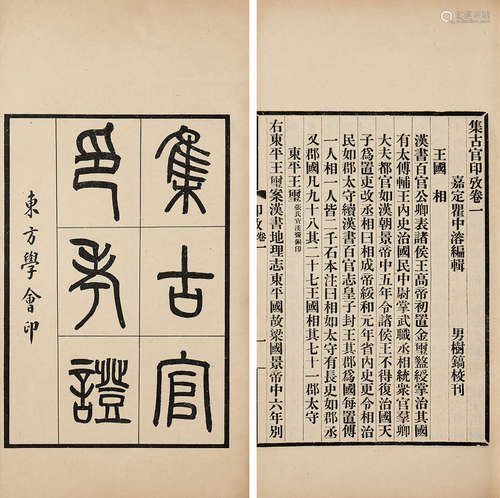 集古官
印考證
東方學會印
集古官印攷卷一
嘉定瞿中溶編輯 男樹鎬校刊
王國相
漢書百官公卿表諸侯王高帝初置金璽盭綬掌治其國
有太傅輔王內史治國民中尉掌武職丞相統衆官羣卿
大夫都官如漢朝景帝中五年令諸侯王不得復治國天
子爲置吏改丞相曰相成帝綏和元年省內史更令相治
民如郡太守續漢書百官志皇子封王其郡爲國每置傅
一人相一人皆二千石本注曰相如太守有長史如郡丞
又郡國凡九十八其二十七王國相其七十一郡太守
東平王璽
右東平王璽案漢書地理志東平國故梁國景帝中六年別
印攷卷一
一